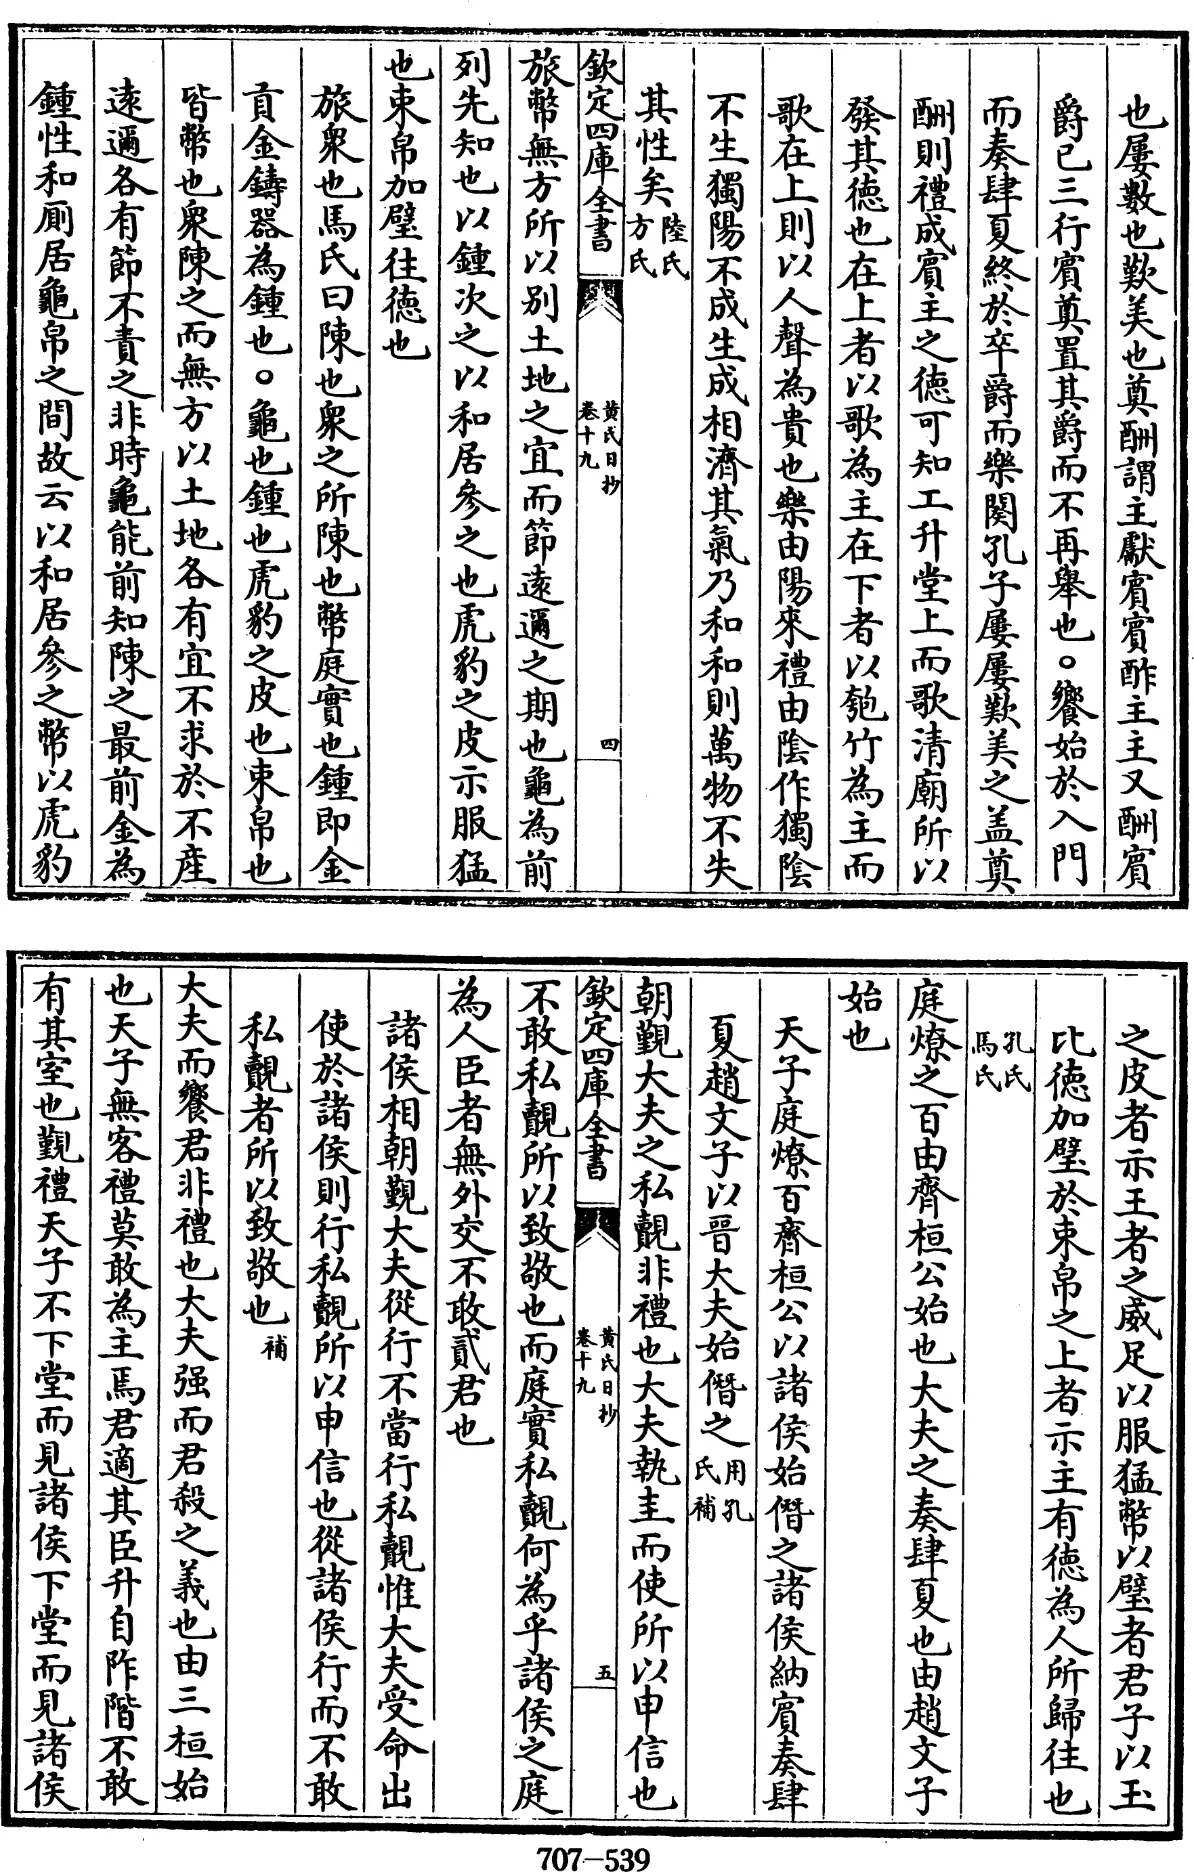 也屢數也歎美也奠酬謂主獻賓賓酢主主又酬賓
爵已三行賓奠置其爵而不再舉也○饗始於入門
而奏肆夏終於卒爵而樂闋孔子屢屢歎美之盖奠
酬則禮成賓主之德可知工升堂上而歌清廟所以
發其德也在上者以歌為主在下者以匏竹為主而
歌在上則以人聲為貴也樂由陽來禮由陰作獨陰
不生獨陽不成生成相濟其氣乃和和則萬物不失
其性矣陸氏方氏
欽定四庫全書 黄氏日抄卷十九 四
旅幣無方所以别土地之宜而節遠邇之期也龜為前
列先知也以鍾次之以和居參之也虎豹之皮示服猛
也束帛加璧往德也
旅衆也馬氏曰陳也衆之所陳也幣庭實也鍾即金
貢金鑄器為鍾也○龜也鍾也虎豹之皮也束帛也
皆幣也衆陳之而無方以土地各有宜不求於不産
遠邇各有節不責之非時龜能前知陳之最前金為
鍾性和厠居龜帛之間故云以和居參之幣以虎豹
之皮者示王者之威足以服猛幣以璧者君子以玉
比德加璧於束帛之上者示主有德為人所歸往也
孔氏馬氏
庭燎之百由齊桓公始也大夫之奏肆夏也由趙文子
始也
天子庭燎百齊桓公以諸侯始僭之諸侯納賓奏肆
夏趙文子以晉大夫始僭之用孔氏補
朝覲大夫之私覿非禮也大夫執圭而使所以申信也
欽定四庫全書 黄氏日抄卷十九 五
不敢私覿所以致敬也而庭實私覿何為乎諸侯之庭
為人臣者無外交不敢貳君也
諸侯相朝覲大夫從行不當行私覿惟大夫受命出
使於諸侯則行私覿所以申信也從諸侯行而不敢
私覿者所以致敬也補
大夫而饗君非禮也大夫强而君殺之義也由三桓始
也天子無客禮莫敢為主焉君適其臣升自阼階不敢
有其室也覲禮天子不下堂而見諸侯下堂而見諸侯
707—539